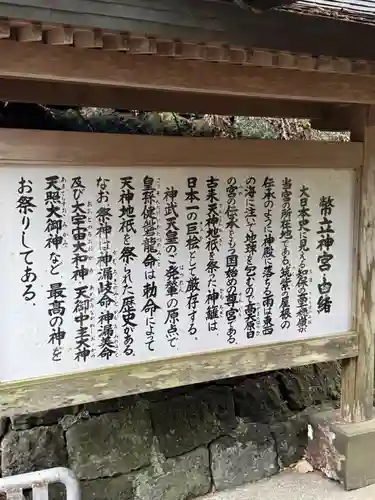 幣立神宮の由緒
大日本史に見える知保の高千穂嶺が
当宮の所在地である。筑紫の屋根の
伝承のように神殿に落ちる雨は東西
の海に注いで地球を包むので高天原日
の宮の伝承をもつ国始めの尊宮である。
古来天神地祇を祭った神籬は
日本一の巨桧として厳存する。
神武天皇のご発輦の原点で
皇孫健磐龍命は勅命によって
天神地祇を祭られた歴史がある。
なお、祭神は神漏岐命・神漏美命
及び大宇宙大和神・天御中主大神
天照大御神など、最高の神を
お祭りしてある。